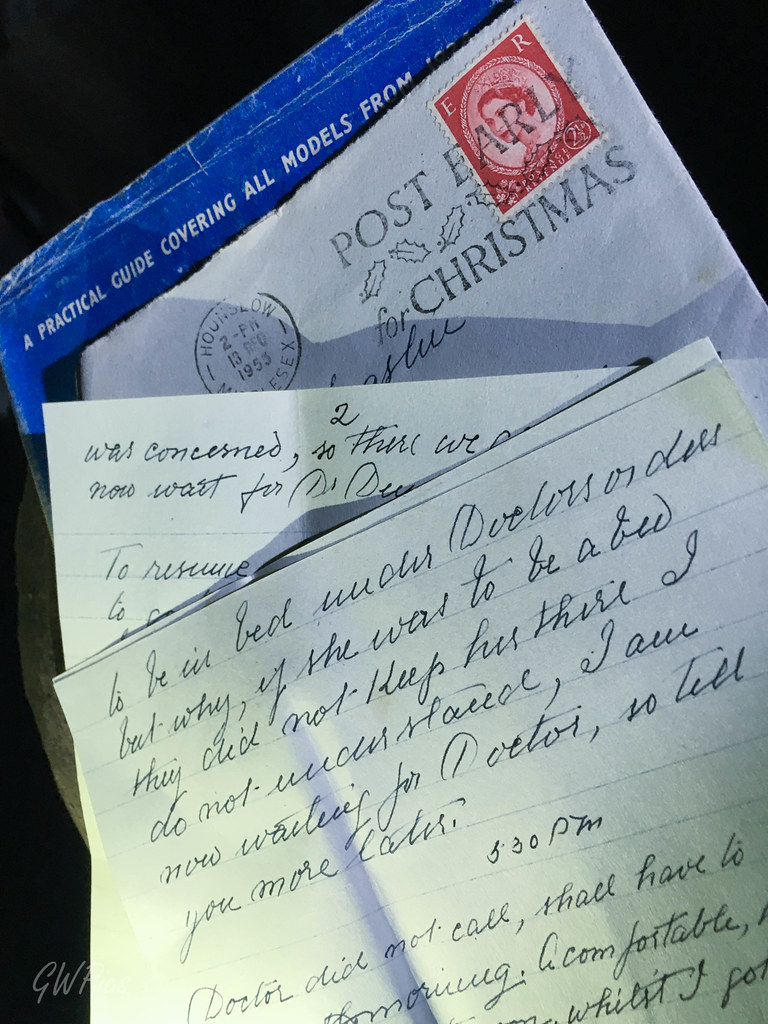 A PRACTICAL GUIDE COVERING ALL MODELS FROM
E R
2½
POST EARLY
for CHRISTMAS
HOUNSLOW
2-PM
13 DEC
1953
MIDDLESEX
2
was concerned, so there we
now wait for Dr
To resume
to
to be in bed under Doctors orders
but why, if she was to be a bed
they did not keep her there I
do not understand, I am
now waiting for Doctor, so till
you more later.
5 30 pm
Doctor did not call, shall have to
morning. comfortable,
whilst I got
GWP